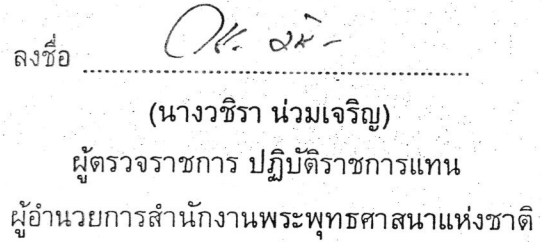 ลงชื่อ
(นางวชิรา น่วมเจริญ)
ผู้ตรวจราชการ ปฏิบัติราชการแทน
ผู้อำนวยการสำนักงานพระพุทธศาสนาแห่งชาติ